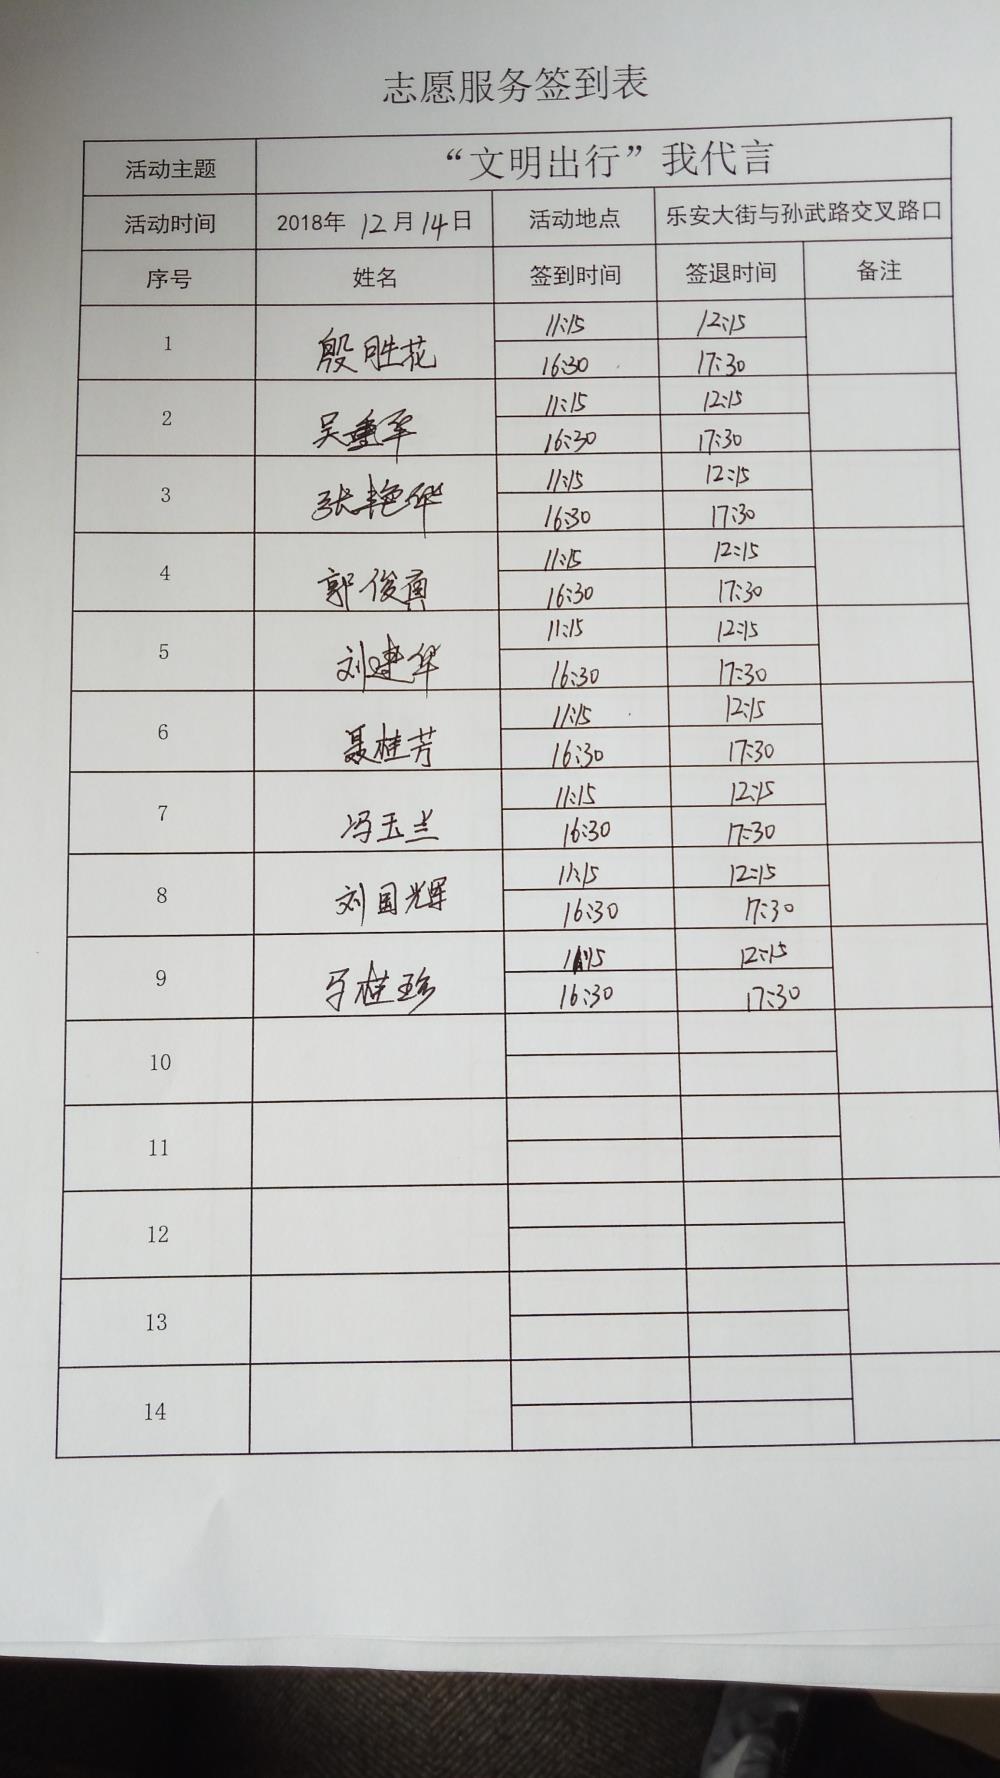 志愿服务签到表
活动主题 “文明出行”我代言
活动时间 2018年 12月14日 活动地点 乐安大街与孙武路交叉路口
序号 姓名 签到时间 签退时间 备注
1 殷胜花 11:15 12:15
16:30 17:30
2 吴重军 11:15 12:15
16:30 17:30
3 张艳华 11:15 12:15
16:30 17:30
4 郭俊 11:15 12:15
16:30 17:30
5 刘建华 11:15 12:15
16:30 17:30
6 聂桂芳 11:15 12:15
16:30 17:30
7 冯玉兰 11:15 12:15
16:30 17:30
8 刘国辉 11:15 12:15
16:30 17:30
9 桂珍 11:15 12:15
16:30 17:30
10
11
12
13
14